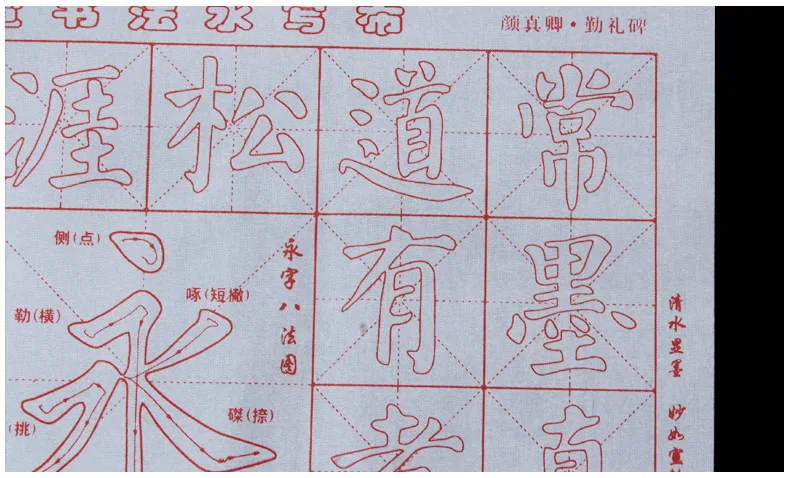 书法水写布
颜真卿·勤礼碑
涯松道常
有墨
侧(点)
永字八法图
啄(短撇)
勒(横)
永
磔(捺)
(挑)
清水显墨 妙如宣